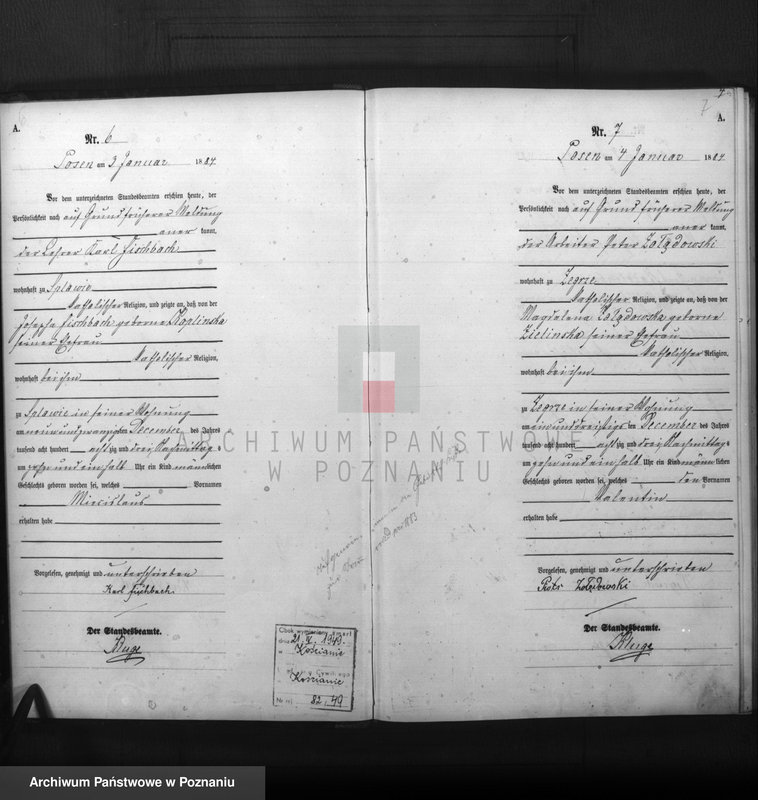 A.
Nr. 6
Posen am 3 Januar 1884.
Vor dem unterzeichneten Standesbeamten erschien heute, der
Persönlichkeit nach auf Grund früherer Meldung
aner kannt,
der Lehrer Karl Fischbach
wohnhaft zu Splawie
katholischer Religion, und zeigte an, daß von der
Josepha Fischbach geborne
seiner Ehefrau
katholischer Religion,
wohnhaft bei ihm
zu Splawie in seiner Wohnung
am neunundzwanzigsten December des Jahres
tausend acht hundert achtzig und drei Nachmittags
um und einhalb Uhr ein Kind männlichen
Geschlechts geboren worden sei, welches Vornamen
Miecislaus
erhalten habe
Vorgelesen, genehmigt und unterschrieben
Karl Fischbach
Der Standesbeamte.
Kluge
Cbok wymieniony zmarł
dnia 21. X. 1949.
w Kościanie
Kościanie
82/49
7
A.
Nr. 7
Posen am 4 Januar 1884.
Vor dem unterzeichneten Standesbeamten erschien heute, der
Persönlichkeit nach auf Grund früherer Meldung
aner kannt,
der Arbeiter Peter Żołądowski
wohnhaft zu Zegrze
katholischer Religion, und zeigte an, daß von der
Magdalena Żołądowska geborne
Zielinska seiner Ehefrau
katholischer Religion,
wohnhaft bei ihm
zu Zegrze in seiner Wohnung
am einunddreißigsten December des Jahres
tausend acht hundert achtzig und drei Nachmittags
um und einhalb Uhr ein Kind männlichen
Geschlechts geboren worden sei, welches den Vornamen
Valentin
erhalten habe
Vorgelesen, genehmigt und unterschrieben
Piotr Żołądowski
Der Standesbeamte.
Kluge
ARCHIWUM PAŃSTWOWE
W POZNANIU
Archiwum Państwowe w Poznaniu